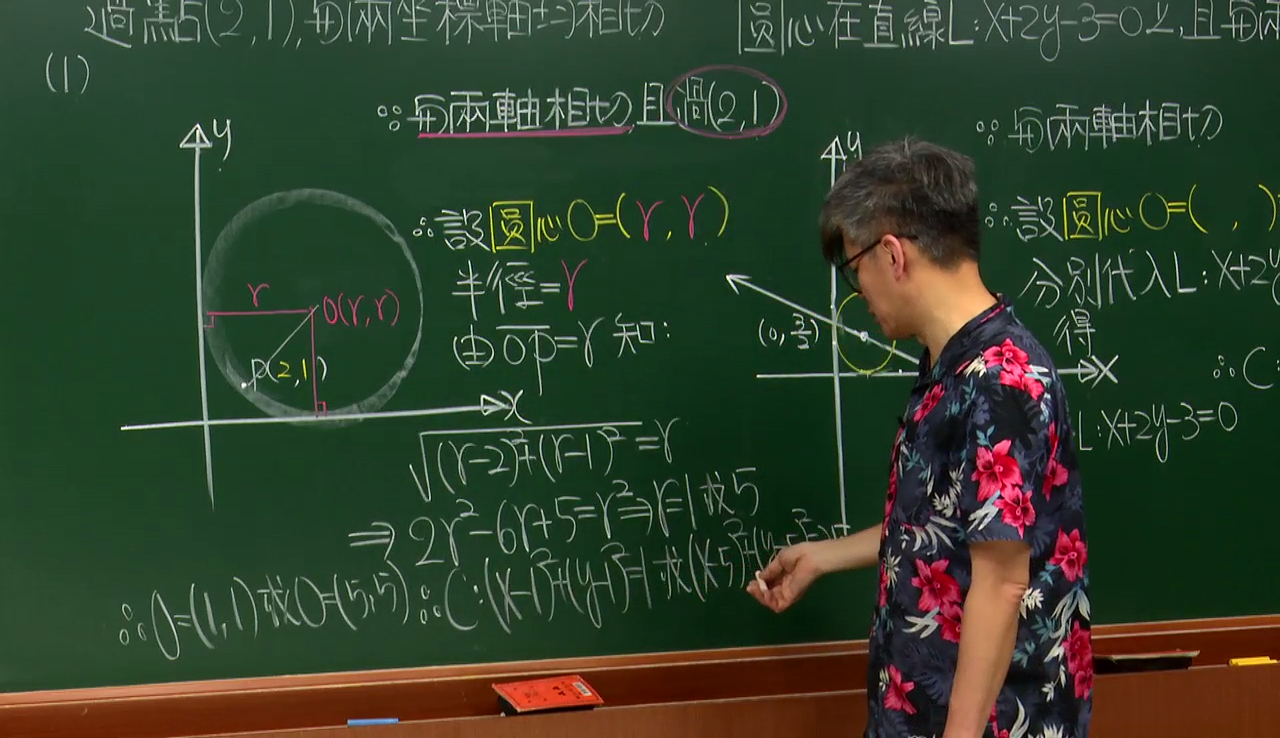 過點(2,1),每兩坐標軸均相切
(1)
∵每兩軸相切且過(2,1)
y
r
O(r,r)
P(2,1)
x
∴設圓心O=(r,r)
半徑=r
由OP=r知:
√(r-2)²+(r-1)²=r
⇒2r²-6r+5=r²⇒r=1或5
∴O=(1,1)或O=(5,5)∴C:(x-1)²+(y-1)²=1或(x-5)²+(y-5)²=
圓心在直線L:x+2y-3=0上,且每兩
∵每兩軸相切
y
(0,3/2)
x
∴設圓心O=( , )
分別代入L:x+2y
得
∴C:
L:x+2y-3=0